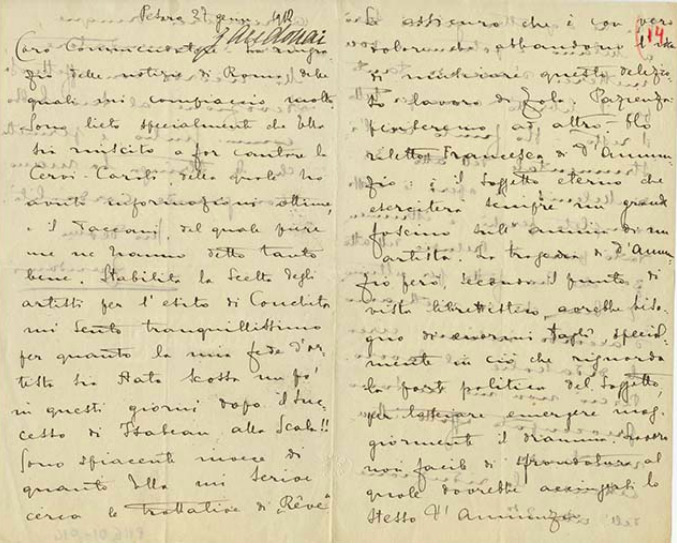 Pesaro 27 genn 1912
Zandonai
Caro Commendatore La ringra
zio delle notizie di Roma delle
quali mi compiaccio molto.
Sono lieto specialmente che Ella
sia riuscito a far cantare la
Cervi-Caroli, della quale ho
avuto informazioni ottime,
e il Taccani, del quale pure
me ne hanno detto tanto
bene. Stabilita la scelta degli
artisti per l'esito di Conchita
mi sento tranquillissimo
per quanto la mia fede d'ar-
tista sia stata scossa un po'
in questi giorni dopo il suc-
cesso di Isabeau alla Scala!!
Sono spiacente invece di
quanto Ella mi scrive
circa le trattative di "Rêve"
114
Le assicuro che è con vero
dolore che abbandono l'idea
di musicare questo delizio-
so lavoro di Zola. Pazienza
penseremo ad altro. Ho
riletto Francesca di D'Annun
zio: è il soggetto eterno che
eserciterà sempre un grande
fascino sull'animo di un
artista. La tragedia di D'Annun
zio però, secondo il punto di
vista librettistico, avrebbe biso-
gno di enormi tagli special-
mente in ciò che riguarda
la parte politica del soggetto,
per lasciare emergere mag-
giormente il dramma. Lavoro
non facile di sfrondatura, al
quale dovrebbe accingersi lo
stesso D'Annunzio